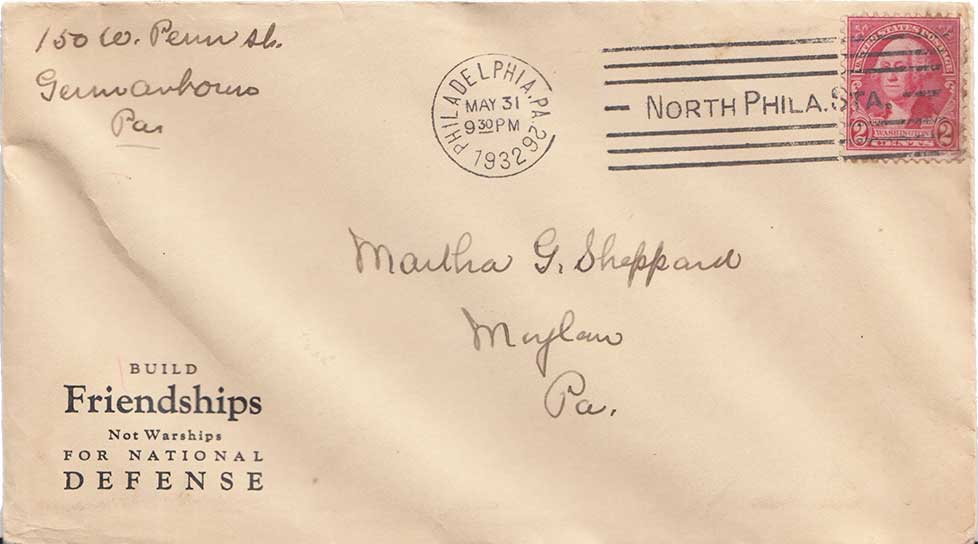 150 W. Penn St.
Germantown
Pa.
PHILADELPHIA, PA. 29
MAY 31
9 30 PM
1932
NORTH PHILA. STA.
UNITED STATES POSTAGE
2 WASHINGTON 2
CENTS
Martha G. Sheppard
Moylan
Pa.
BUILD
Friendships
Not Warships
FOR NATIONAL
DEFENSE